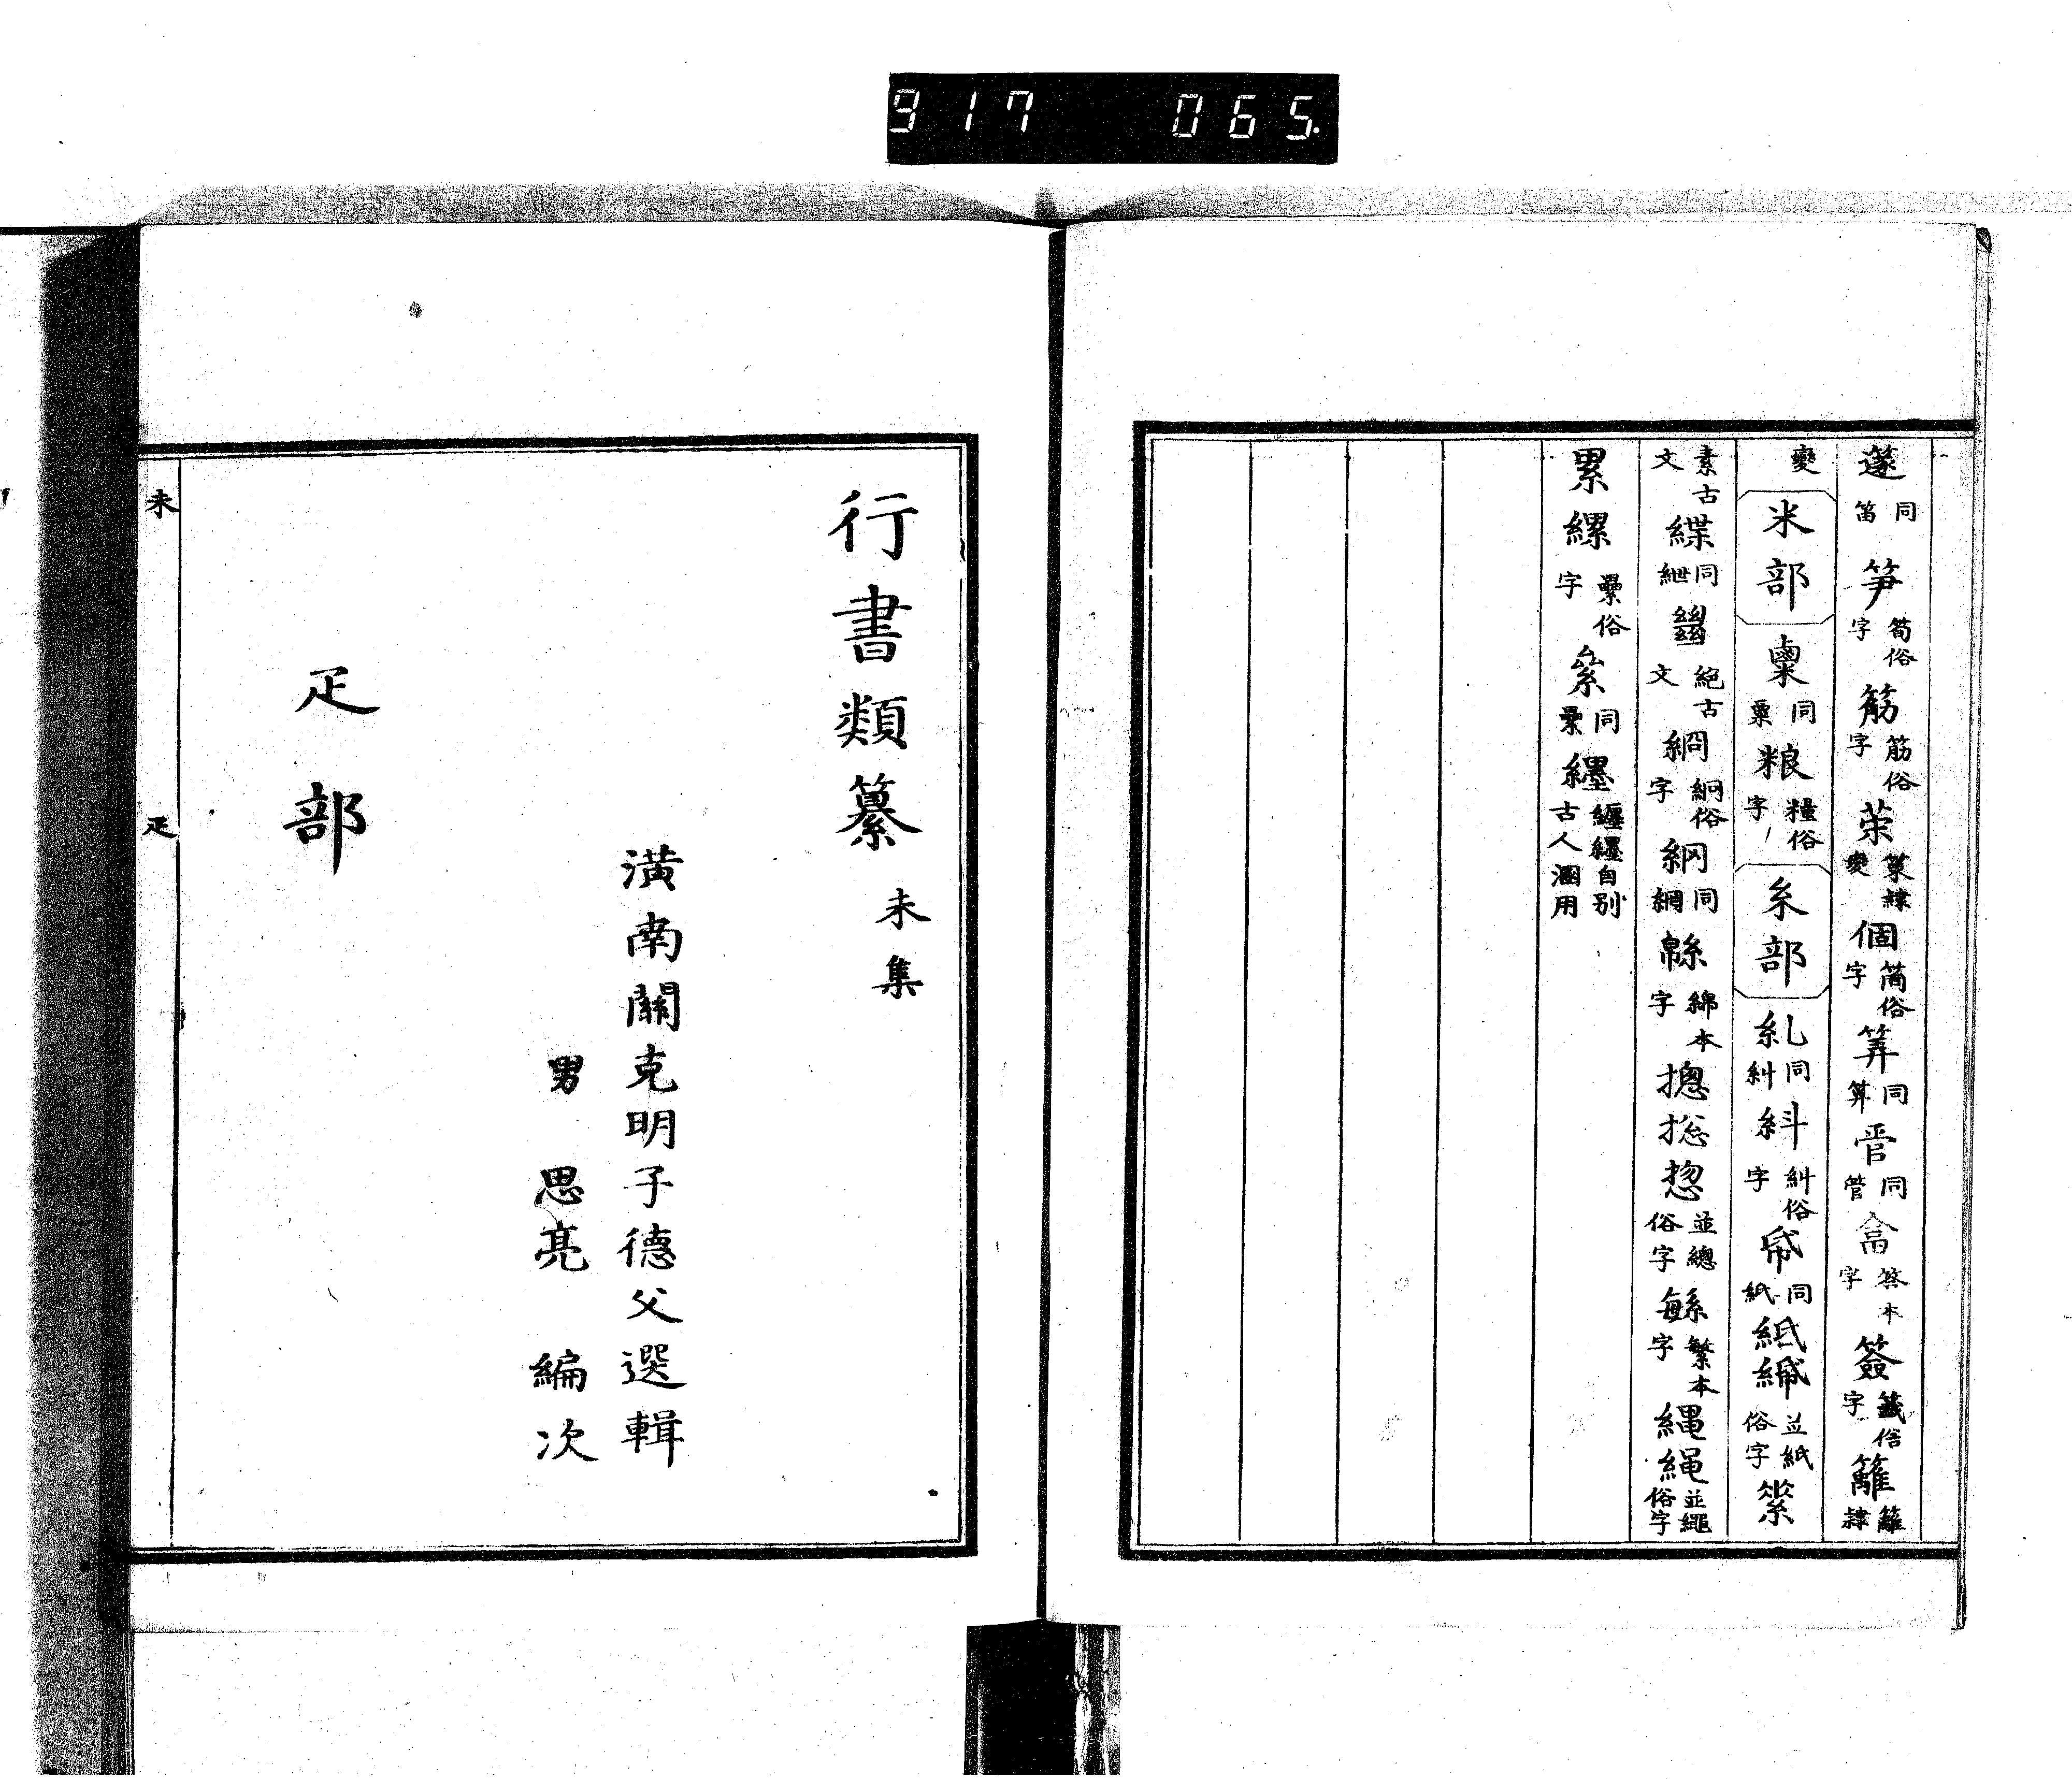 917 065.
蓫同笛 笋筍俗字 筋筋俗字 䒷策隸變 個箇俗字 筭同算 管同管 畣答本字 簽籤俗字 籬籬隸
變 米部 同粟 粮糧俗字 糸部 糺同糾 紏糾俗字 帋同紙 並紙俗字 縈
素古文 緤同紲 絕古文 綱俗字 同網 緜綿本字 摠捴惣並總俗字 緐繁本字 縄绳並繩俗字
累縲纍俗字 絫同纍 纆纏纆自別古人溷用
行書類纂 未集
潢南關克明子德父選輯
男 思亮 編次
疋部
未 疋